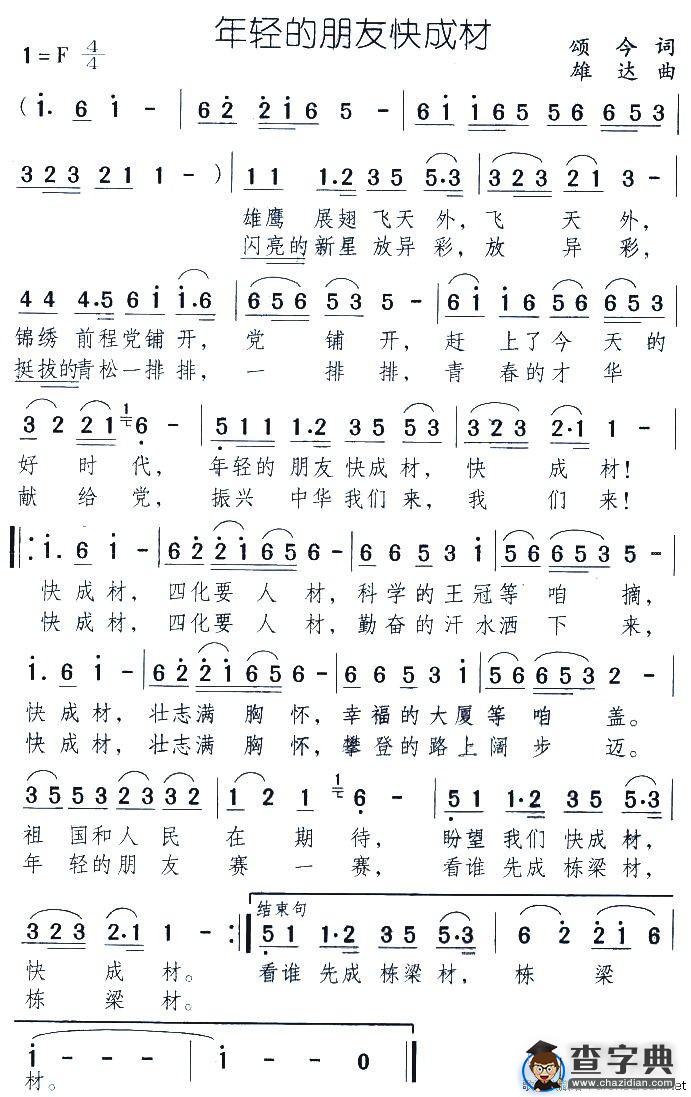 年轻的朋友快成材
1=F 4/4
颂今词
雄达曲
(i. 6 i - | 6 2 2 i 6 5 | 6 i i 6 5 5 6 6 5 3 |
3 2 3 2 1 1 - ) | 1 1 1.2 3 5 5.3 | 3 2 3 2 1 3 - |
雄鹰 展翅 飞天 外, 飞 天 外,
闪亮的新星 放异 彩, 放 异 彩,
4 4 4.5 6 i i.6 | 6 5 6 5 3 5 - | 6 i 5 6 5 3 |
锦绣 前程党铺 开, 党 铺 开, 赶 上了今 天的
挺拔的青松一排排, 一 排 排, 青 春的才 华
3 2 2 1 1 6 - | 5 1 1 1.2 3 5 5 3 | 3 2 3 2.1 1 - |
好 时 代, 年轻的 朋友 快成 材, 快 成 材!
献 给 党, 振兴 中华 我们 来, 我 们 来!
‖: i. 6 i - | 6 2 2 i 6 5 6 - | 6 6 5 3 i | 5 5 6 6 5 3 3 - |
快成材, 四化要 人 材, 科学的 王冠等 咱 摘,
快成材, 四化要 人 材, 勤奋的 汗水洒 下 来,
i. 6 i - | 6 2 2 i 6 5 6 - | 6 6 5 3 i | 5 5 6 6 5 3 2 - |
快成材, 壮志满 胸 怀, 幸福的 大厦等 咱 盖。
快成材, 壮志满 胸 怀, 攀登的 路上阔 步 迈。
3 5 5 3 2 3 3 2 | 1 2 1 1 6 - | 5 1 1.2 3 5 5.3 |
祖 国和人 民 在 期 待, 盼望 我们 快成 材,
年 轻的朋 友 赛 一 赛, 看谁 先成 栋梁 材,
结束句
3 2 3 2.1 1 - :‖ 5 1 1.2 3 5 5.3 | 6 2 2 i 6 |
快 成 材。 看谁 先成 栋梁 材, 栋 梁
栋 梁 材。
i - - - | i - i 0 ‖
材。
查字典
www.chazidian.com